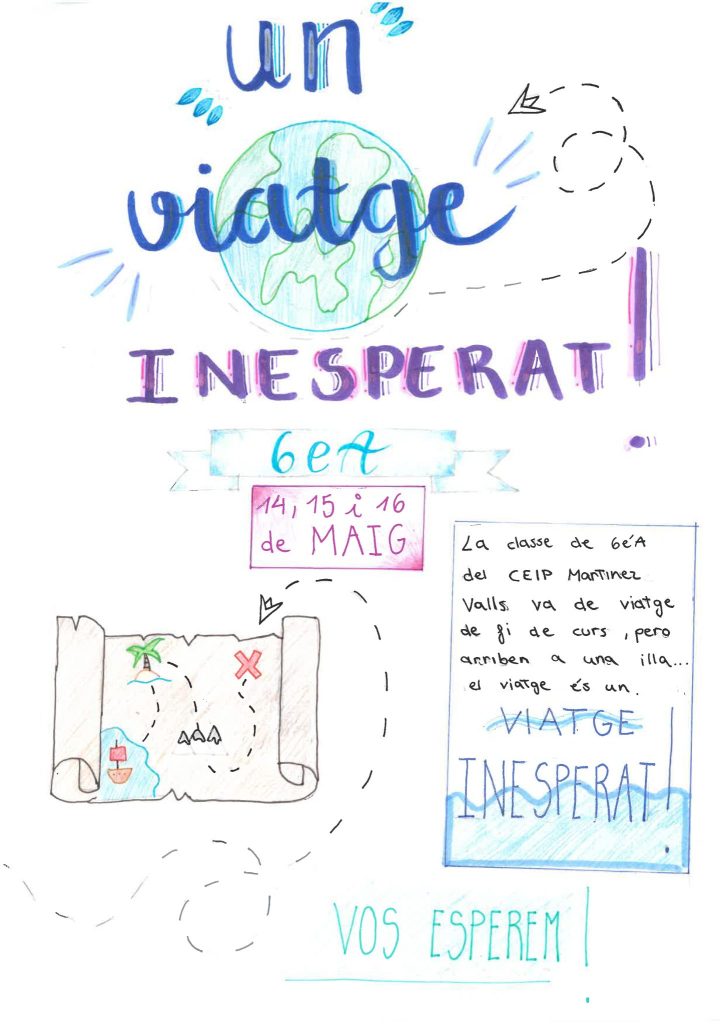 un
viatge
INESPERAT!
6eA
14, 15 i 16
de MAIG
La classe de 6éA
del CEIP Martínez
Valls va de viatge
de fi de curs, pero
arriben a una illa...
el viatge és un.
VIATGE
INESPERAT!
VOS ESPEREM!